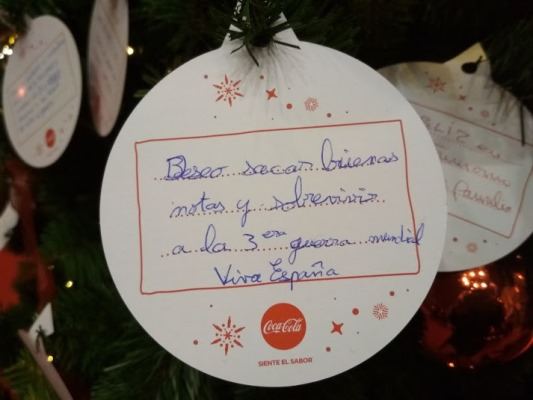 Deseo sacar buenas
notas y sobrevivir
a la 3era guerra mundial
Viva España
Coca-Cola
SIENTE EL SABOR